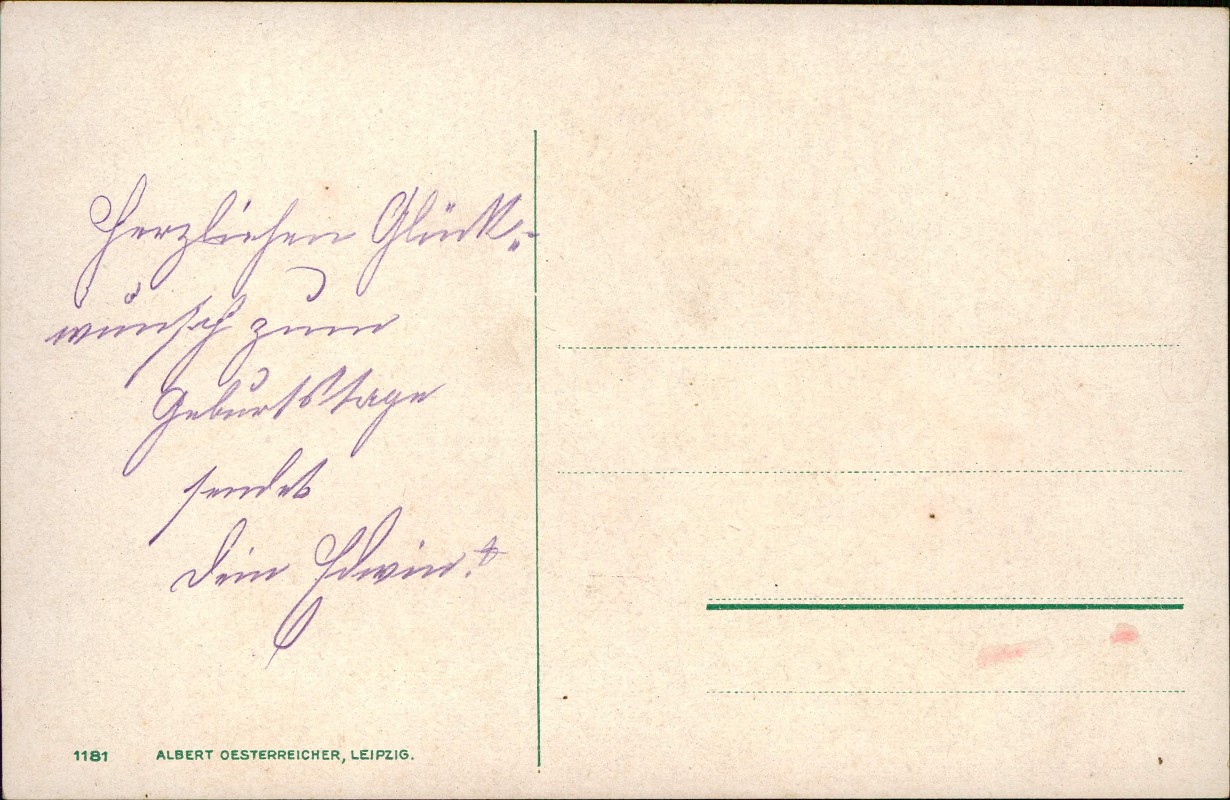 Herzlichen Glück-
wunsch zum
Geburtstage
sendet
Dein Edwin!
1181 ALBERT OESTERREICHER, LEIPZIG.